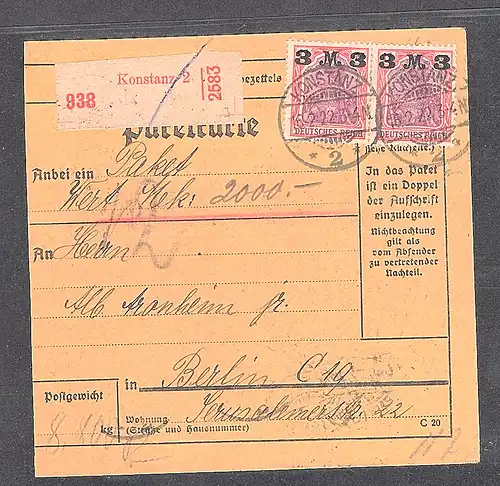 3 M. 3 3 M. 3
Konstanz 2
938
2583
bezettels
KONSTANZ
KONSTANZ
DEUTSCHES REICH DEUTSCHES REICH
* 2 *
* 2 *
Paketkarte
Anbei ein Paket
Wert Mk: 2000.–
An Herrn
In das Paket
ist ein Doppel
der Aufschrift
einzulegen.
Nichtbeachtung
gilt als
vom Absender
zu vertretender
Nachteil.
Alb. Aronheim jr.
in Berlin C 19
Postgewicht
kg
Wohnung
(Straße und Hausnummer)
Jerusalemerstr 22
C 20